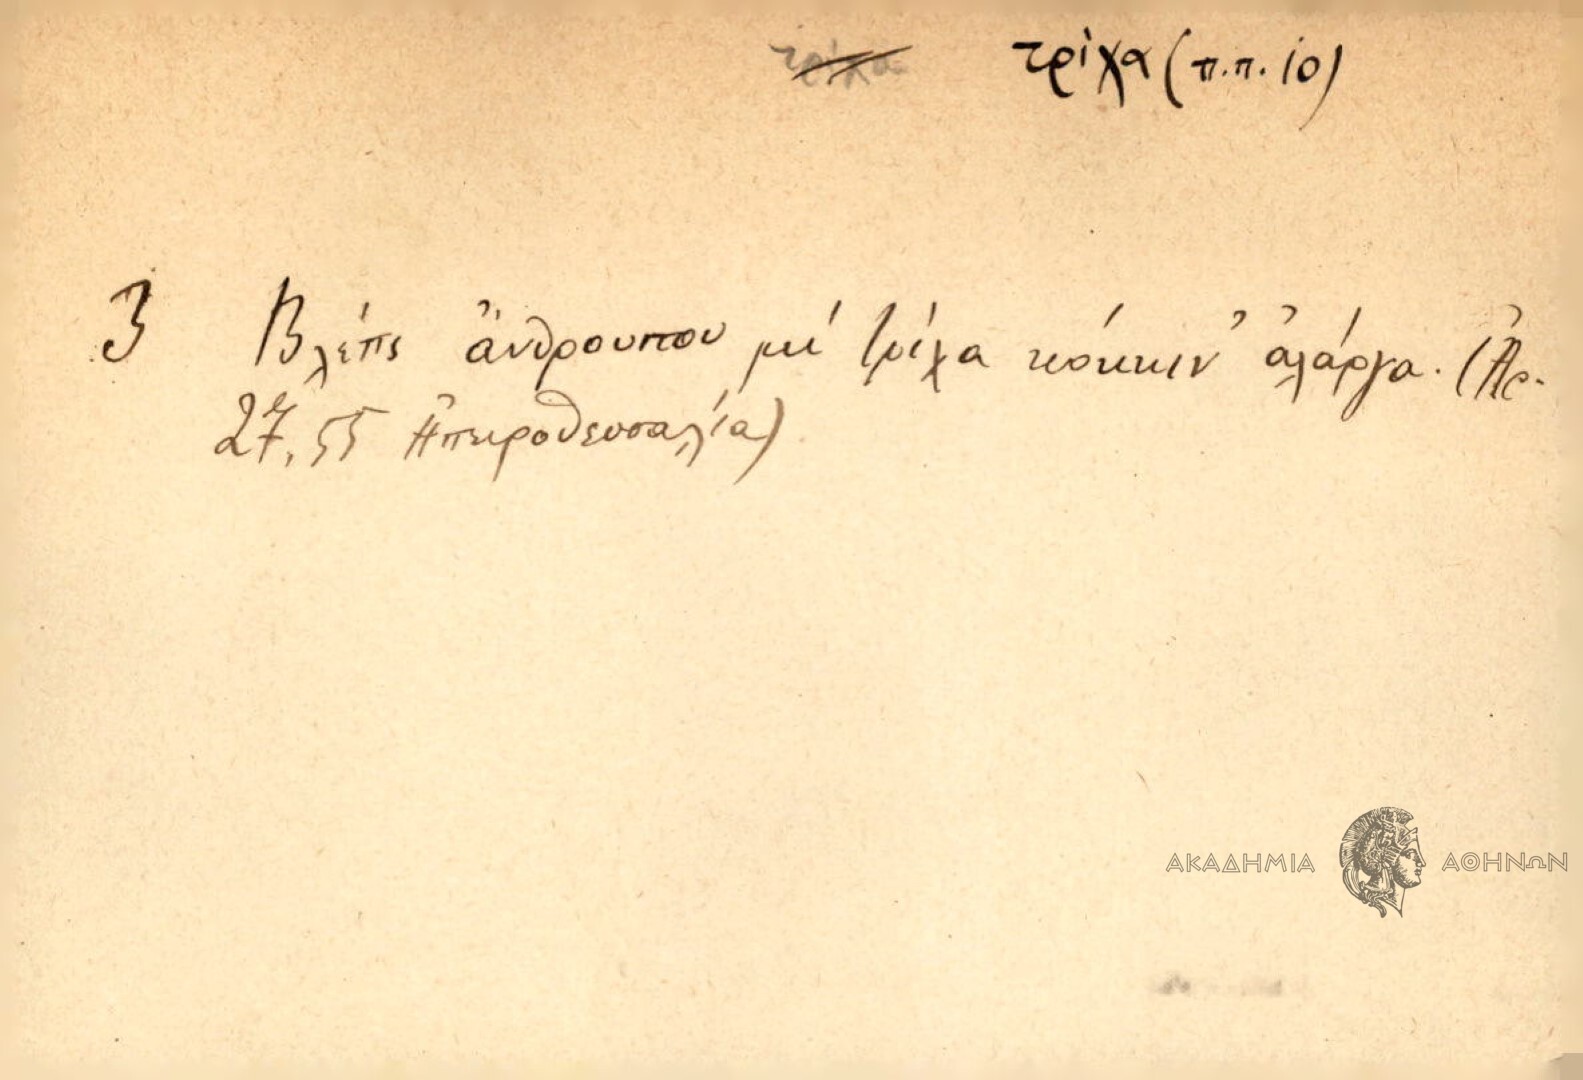 τρίχα τρίχα (π.π. 10)
3 Βλέπς ἄνθρουπου μέ τρίχα κόκκιν' ἀλάργα. (Ἀρ.
27, 55 Ἠπειροθεσσαλία)
ΑΚΑΔΗΜΙΑ ΑΘΗΝΩΝ